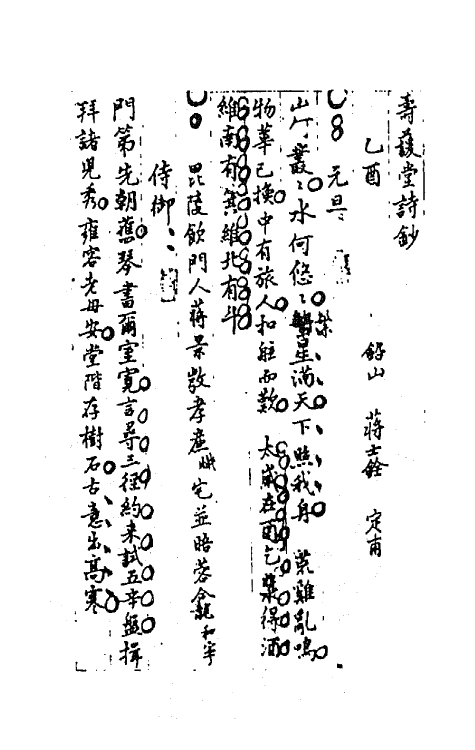 壽護堂詩鈔
乙酉
鉛山 蔣士銓 定甫
元旦
山何叢叢水何悠悠繁星滿天下照我身 荒雞亂鳴
物華已換中有旅人扣舷而歎 太歲在酉乞漿得酒
維南有箕維北有斗
毘陵飲門人蔣 敬孝廉 宅並晤蓉龕和寧
侍御
門第先朝舊琴書爾室寬言尋三徑約來試五辛盤揖
拜諸兒秀雍容老母安堂階存樹石古意出高寒